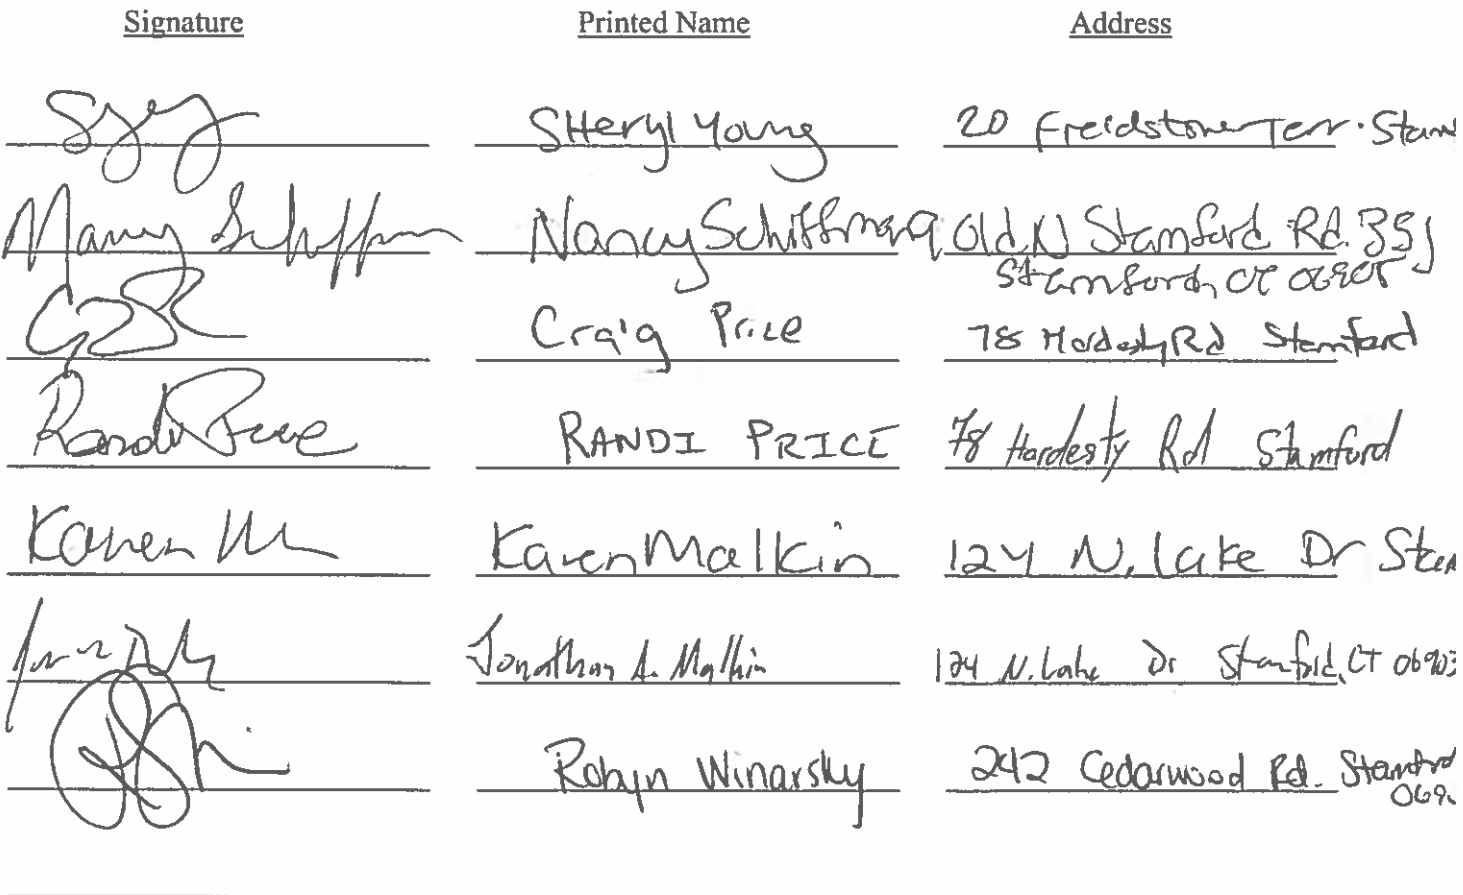 Signature Printed Name Address
SHeryl Young 20 Freidstone Terr. Stam
Nancy Schiffman Nancy Schiffman Old N Stamford Rd. 35J
Stamford, CT 06905
Craig Price 78 Hardesty Rd Stamford
Randi Price RANDI PRICE 78 Hardesty Rd Stamford
Karen M Karen Malkin 124 N. Lake Dr Stam
Jonathan A. Malkin 124 N. Lake Dr Stamford, CT 06903
Robyn Winarsky 242 Cedarwood Rd. Stamford
069